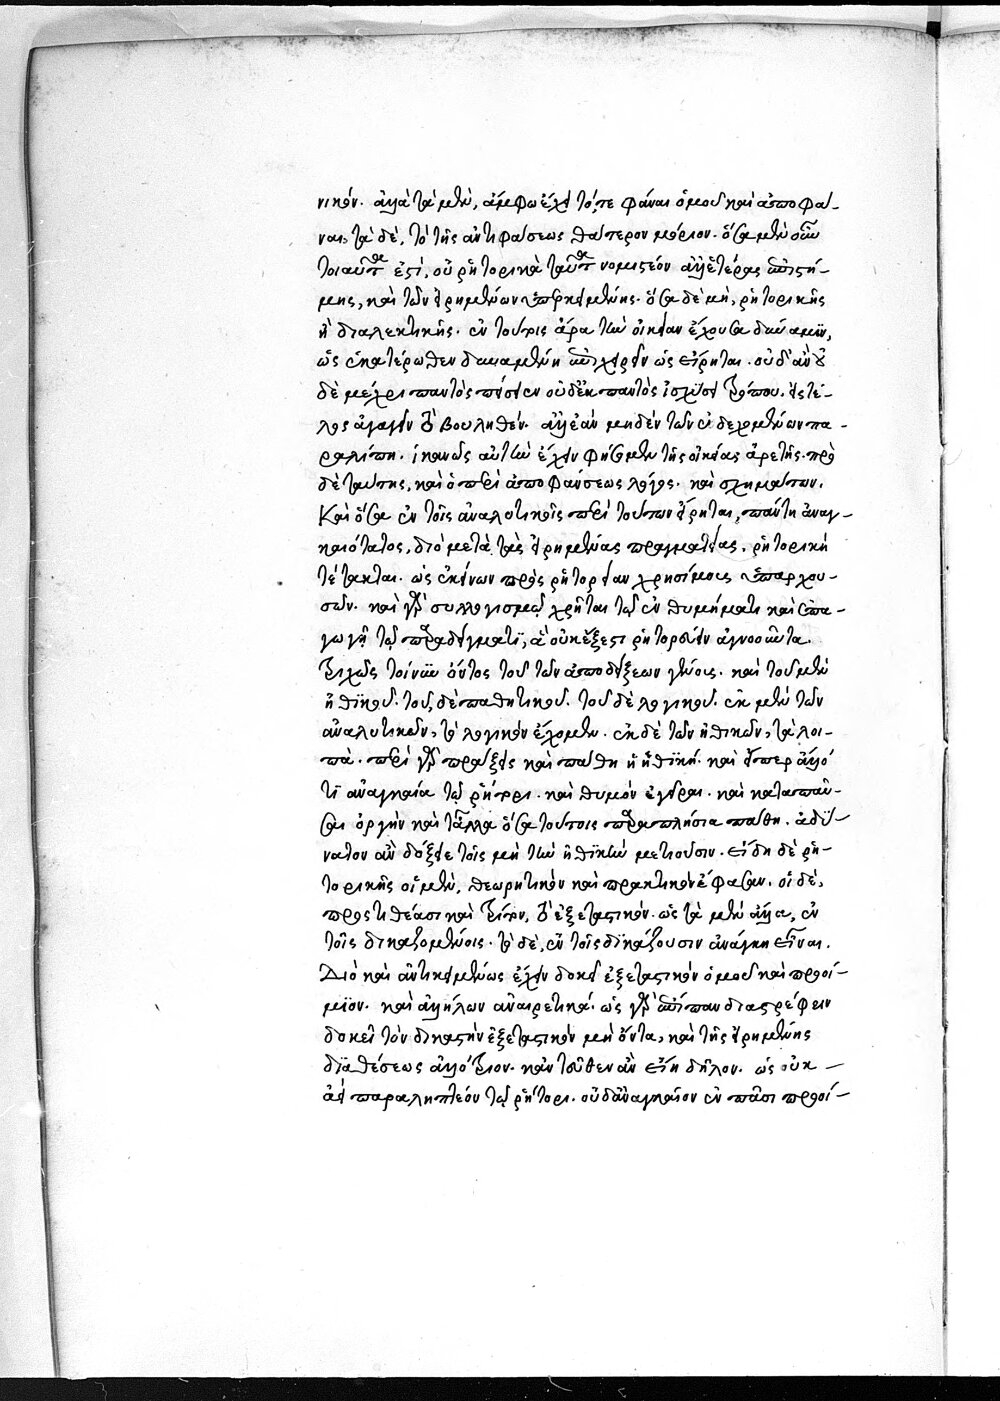 νικόν. ἀλλὰ τὰ μὲν, ἄμφω ἔχει τό, τε φάναι ὁμοῦ καὶ ἀποφα-
ναι, τὰ δὲ, τὸ τῆς ἀντιφάσεως θάτερον μόριον. ὅσα μὲν οὖν
τοιαῦτα ἐστὶ, οὐ ῥητορικὰ ταῦτα νομιστέον ἀλλ' ἑτέρας ἐπιστή-
μης, καὶ τῶν εἰρημένων ὑπερκειμένης. ὅσα δὲ μὴ, ῥητορικῆς
ἢ διαλεκτικῆς. ἐν τούτοις ἄρα τὴν οἰκείαν ἔχουσα δύναμιν,
ὡς ἑκατέρωθεν δυναμένη ἐπιχειρεῖν ὡς εἴρηται. οὐδ' ἂν
δὲ μέχρι παντὸς πείσειεν οὐδ' ἐκ παντὸς ἰσχύσει τρόπου. εἰς τέ-
λος ἀγαγεῖν τὸ βουληθέν. ἀλλ' ἐὰν μηδὲν τῶν ἐνδεχομένων πα-
ραλίπῃ. ἱκανῶς αὐτὴν ἔχειν φήσομεν τῆς οἰκείας ἀρετῆς. πρὸ
δὲ ταύτης, καὶ ὁ περὶ ἀποφάνσεως λόγος. καὶ σχημάτων.
Καὶ ὅσα ἐν τοῖς ἀναλυτικοῖς περὶ τούτων εἴρηται, πάντη ἀναγ-
καιότατος, διὸ μετὰ τὰς εἰρημένας πραγματείας. ῥητορικὴ
τέτακται. ὡς ἐκείνων πρὸς ῥητορείαν χρησίμοις ὑπαρχου-
σῶν. καὶ γὰρ συλλογισμῷ χρῆται τῷ ἐνθυμήματι καὶ ἐπα-
γωγῇ τῷ παραδείγματι, ἃ οὐκ ἔξεστι ῥητορεύειν ἀγνοοῦντα.
Τριχῶς τοίνυν ὄντος τοῦ τῶν ἀποδείξεων γένους. καὶ τοῦ μὲν
ἠθικοῦ. τοῦ, δὲ παθητικοῦ. τοῦ δὲ λογικοῦ. ἐκ μὲν τῶν
ἀναλυτικῶν, τὸ λογικὸν ἔχομεν. ἐκ δὲ τῶν ἠθικῶν, τὰ λοι-
πά. περὶ γὰρ πράξεις καὶ πάθη ἡ ἠθική. καὶ εἴπερ ἄλλό
τι ἀναγκαῖα τῷ ῥήτορι. καὶ θυμὸν ἐγεῖραι. καὶ καταπαῦ-
σαι ὀργὴν καὶ τἆλλα ὅσα τούτοις παραπλήσια πάθη. ἀδύ-
νατον ἂν δόξειε τοῖς μὴ τὴν ἠθικὴν μετιοῦσιν. εἴδη δὲ ῥη-
τορικῆς οἱ μὲν, θεωρητικὸν καὶ πρακτικὸν ἔφασαν. οἱ δὲ,
προστιθέασι καὶ τρίτον, τὸ ἐξεταστικόν. ὡς τὰ μὲν ἄλλα, ἐν
τοῖς δικαζομένοις. τὸ δὲ, ἐν τοῖς δικάζουσιν ἀνάγκη εἶναι.
Διὸ καὶ ἀντικειμένως ἔχειν δοκεῖ ἐξεταστικὸν ὁμοῦ καὶ προοί-
μιον. καὶ ἀλλήλων ἀναιρετικά. ὡς γὰρ ἐπίπαν διαστρέφειν
δοκεῖ τὸν δικαστὴν ἐξεταστικὸν μὴ ὄντα, καὶ τῆς εἰρημένης
διαθέσεως ἀλλότριον. κἀντεῦθεν ἂν εἴη δῆλον. ὡς οὐκ
ἀεὶ παραληπτέον τῷ ῥήτορι. οὐδ' ἀναγκαῖον ἐν πᾶσι προοί-